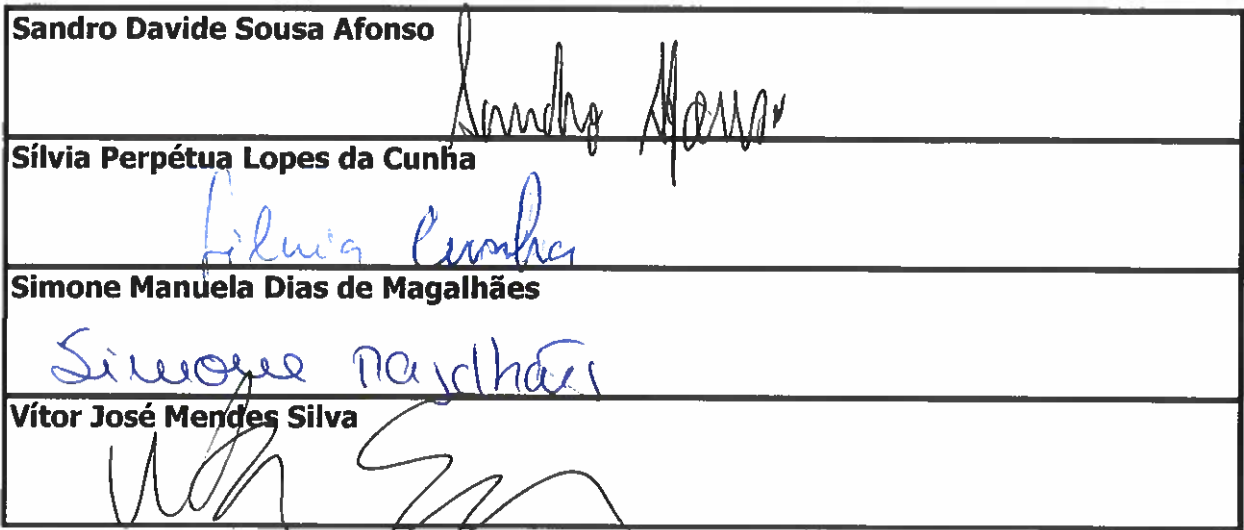 Sandro Davide Sousa Afonso
Sandro Afonso
Sílvia Perpétua Lopes da Cunha
Sílvia Cunha
Simone Manuela Dias de Magalhães
Simone Magalhães
Vítor José Mendes Silva